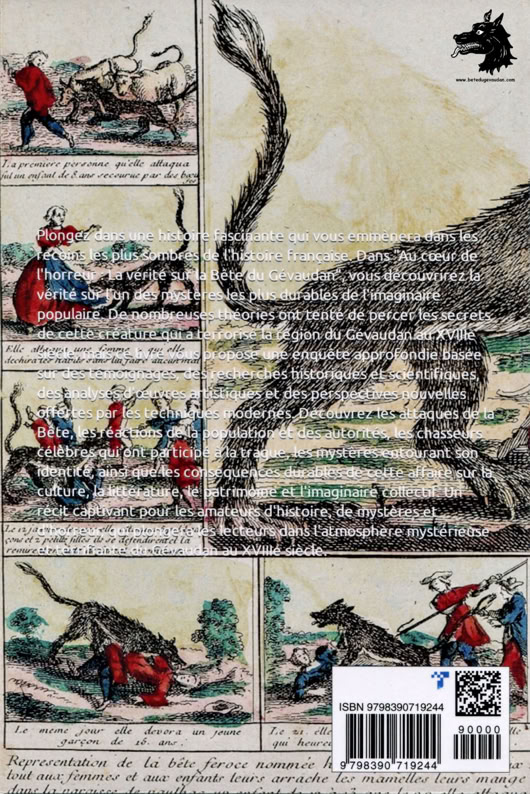 www.betedugevaudan.com
La premiere personne qu'elle attaqua
fut un enfant de 8. ans secourue par des bœu
Plongez dans une histoire fascinante qui vous emmènera dans les
recoins les plus sombres de l'histoire française. Dans "Au cœur de
l'horreur : La vérité sur la Bête du Gévaudan", vous découvrirez la
vérité sur l'un des mystères les plus durables de l'imaginaire
populaire. De nombreuses théories ont tenté de percer les secrets
de cette créature qui a terrorisé la région du Gévaudan au XVIIIe
siècle, mais ce livre vous propose une enquête approfondie basée
sur des témoignages, des recherches historiques et scientifiques,
des analyses d'œuvres artistiques et des perspectives nouvelles
offertes par les techniques modernes. Découvrez les attaques de la
Bête, les réactions de la population et des autorités, les chasseurs
célèbres qui ont participé à la traque, les mystères entourant son
identité, ainsi que les conséquences durables de cette affaire sur la
culture, la littérature, le patrimoine et l'imaginaire collectif. Un
récit captivant pour les amateurs d'histoire, de mystères et
d'horreur, qui plongera les lecteurs dans l'atmosphère mystérieuse
et terrifiante du Gévaudan au XVIIIe siècle.
Elle attaqua une femme
Le 12 ja
çons et 2 petite filles ils se defendirent et la
Le meme jour elle devora un jeune
garçon de 16. ans
Le 21. elle
qui heure
ISBN 9798390719244
90000
9 798390 719244
Representation de la bête feroce nommée
tout aux femmes et aux enfants leurs arrache les mamelles leurs mange